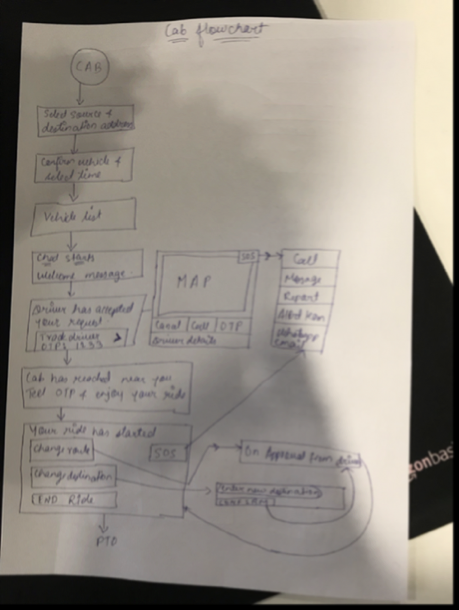 Cab flowchart
CAB
Select source &
destination address
Confirm vehicle &
select time
Vehicle list
Chat starts
welcome message.
Driver has accepted
your request
Track driver
OTP:
MAP
SOS
Cancel Call OTP
Driver details
Call
Message
Report
Cab has reached near you
Tell OTP & enjoy your ride
Your ride has started
Change route
SOS
Change destination
END Ride
On Approval from driver
Enter new destination
PTO